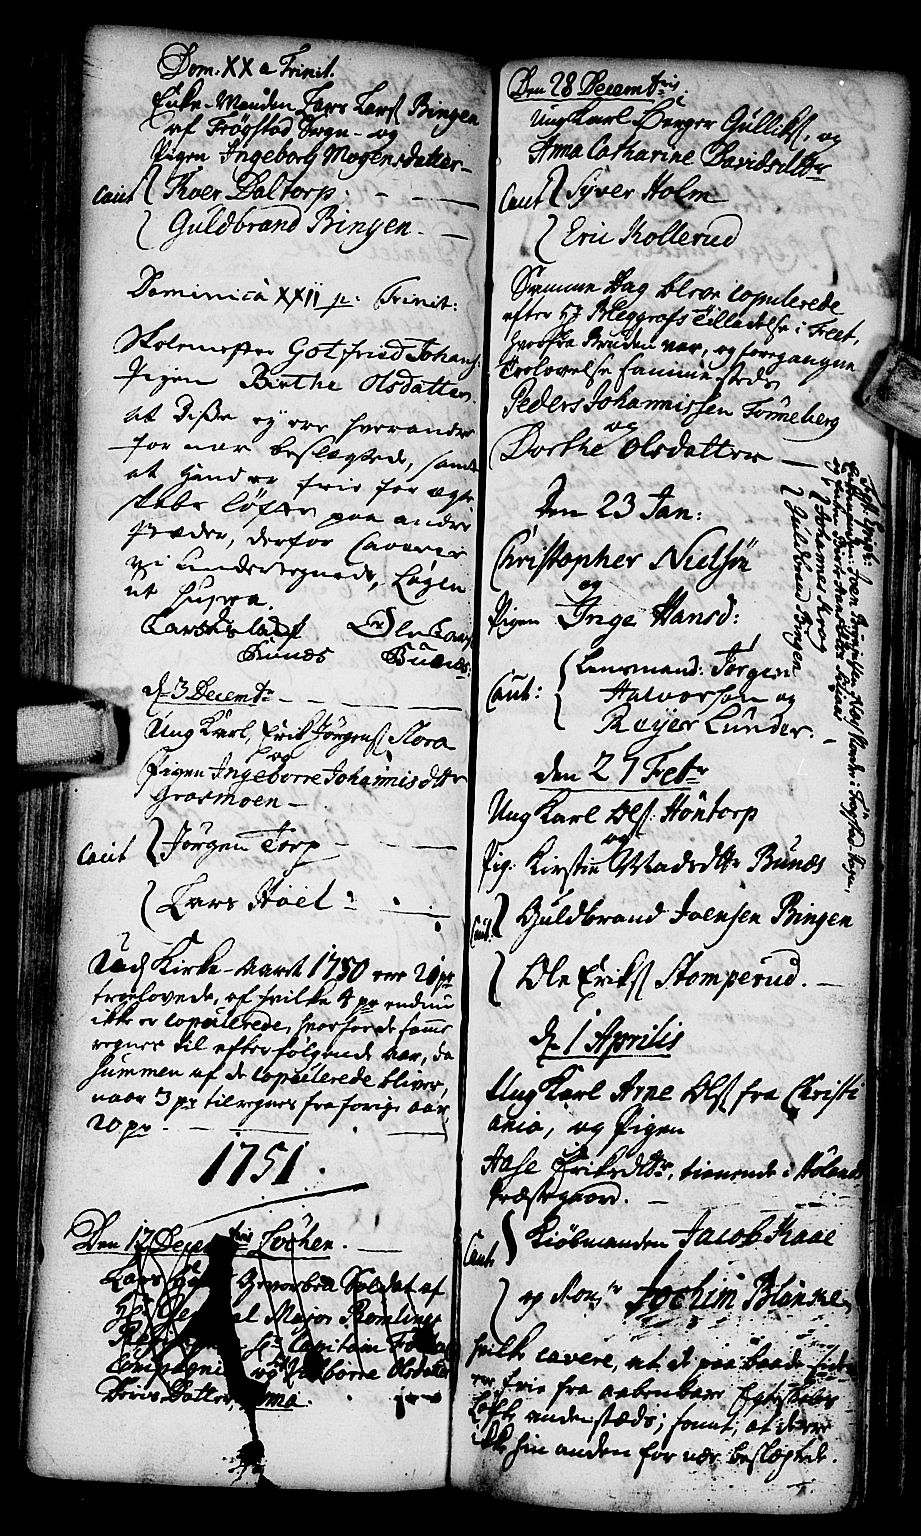 Dom. XX a Trinit.
Enke-Manden Lars Larsß Bingen
af Frögstad Sogn - og
Pigen Ingeborg Mogensdatter -
Caut { Iver Daltorp. -
{ Guldbrand Bingen. -
Dominica XXII p: Trinit:
Skolemester Gotfried Johanß:
Pigen Birthe Olsdatter.
at Disse ey ere hverandre
for nær beslegtede, samt
at hand er frie for ægte
skabs løfter paa andre
stæder, derfor Caverer
vi undertegnede, Løgen
ut supra.
Lars
Bunæs Bunæs:
d. 3 Decembr
Ung Karl, Erik Jörgensß Kora
og
Pigen Ingeborre Johannisdttr
Grasmoen -
Caut { Jörgen Torp -
{ Lars Hoel -
Udj Kirke-Aaret 1750 ere 21 pr
troelovede, af hvilke 4 pr endnu
ikke er copulerede, hvorfore de samme
regnes til efterfølgende Aar, da
Summen af de Copulerede bliver,
naar 3 pr tilregnes fra forige aar
20 pr -
1751.
Den 17 Decembris Lochen. -
Lars Gevorben Soldat af
Hr General Major Romlings
Regim Hr Capitain
Compagnie og Olsdatter
Deris Datter, Anna.
Den 28 Decembris.
Ung Karl Berger Gulliksß, og
Anna Catharine Davidsdttr
Caut { Syver Holm
{ Eric Kollerud
Samme Dag bleve copulerede
efter Hr Bleggrafs Tilladelse i Treet,
hvorfra Bruden var, og foregangen
Trolovelse samme steds
Peder Johannissen Tønneberg
og
Dorthe Olsdatter -
Den 23 Jan:
Christopher Nielsøn
og
Pigen Inge Hansd:
Caut: { Lensmand: Jørgen
Halvorsøn og
Reyer Lunder. -
den 27 Febr
Ung Karl Olß. Höntorp
og
Pig. Kirstin Madsdttr Bunæs
Caut. { Guldbrand Joensen Bingen
{ Ole Eriksß Stomperud. -
d. 1 Aprilis
Ung Karl Arne Olsß fra Christi
ania, og Pigen
Aase Eriksdttr, tienende i Høland
Præstegaard. -
Caut. { Kiöbmanden Jacob Kaae
{ og Monsr Jochim Blanke,
hvilke cavere, at de paa baade sider
er frie fra aabenbare Egteskabs
Løfte andenstæds; samt, at de er
ikke hin anden for nær beslegtede.
{ Johannes Krog
{ Guldbrand Bingen